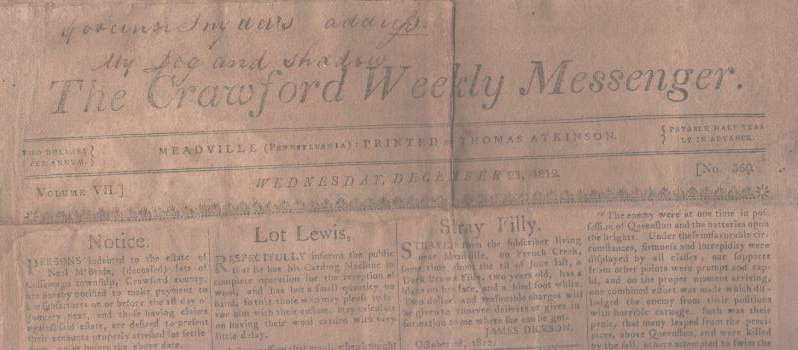 Governor Snyders address
My Dog and shadow
The Crawford Weekly Messenger.
TWO DOLLARS
PER ANNUM.
MEADVILLE (PENNSYLVANIA): PRINTED BY THOMAS ATKINSON.
PAYABLE HALF YEAR
LY IN ADVANCE.
VOLUME VII.]
WEDNESDAY, DECEMBER 1812.
[No.
Notice.
PERSONS indebted to the estate of
Neal McBride, (deceased) late of
township, Crawford county,
are hereby notified to make payment to
on or before the 1st day of
next, and those having claims
said estate, are desired to present
their accounts properly attested for settle
on or before the above date.
Lot Lewis,
RESPECTFULLY informs the public
that he has his Carding Machine in
complete operation for the reception of
wool, and has a small quantity on
hand, so that those who may please to fa-
vor him with their custom, may calculate
on having their wool carded with very
little delay.
Stray Filly.
STRAYED from the subscriber living
near Meadville, on French Creek,
some time about the 1st of June last, a
Dark Brown Filly, two years old, has a
star in the face, and a hind foot white.
Two dollars and reasonable charges will
be given to whoever delivers or gives in-
formation so me where she can be got.
JAMES DICKSON.
October 1812.
"The enemy were at one time in pos-
session of Queenston and the batteries upon
the heights. Under these unfavourable cir-
cumstances, firmness and intrepidity were
displayed by all classes, our supports
from other points were prompt and rap-
id, and on the proper moment arriving,
one combined effort was made which dis-
lodged the enemy from their positions
with horrible carnage. Such was their
panic, that many leaped from the preci-
pices, above Queenston, and were killed
by the fall, others attempted to swim the